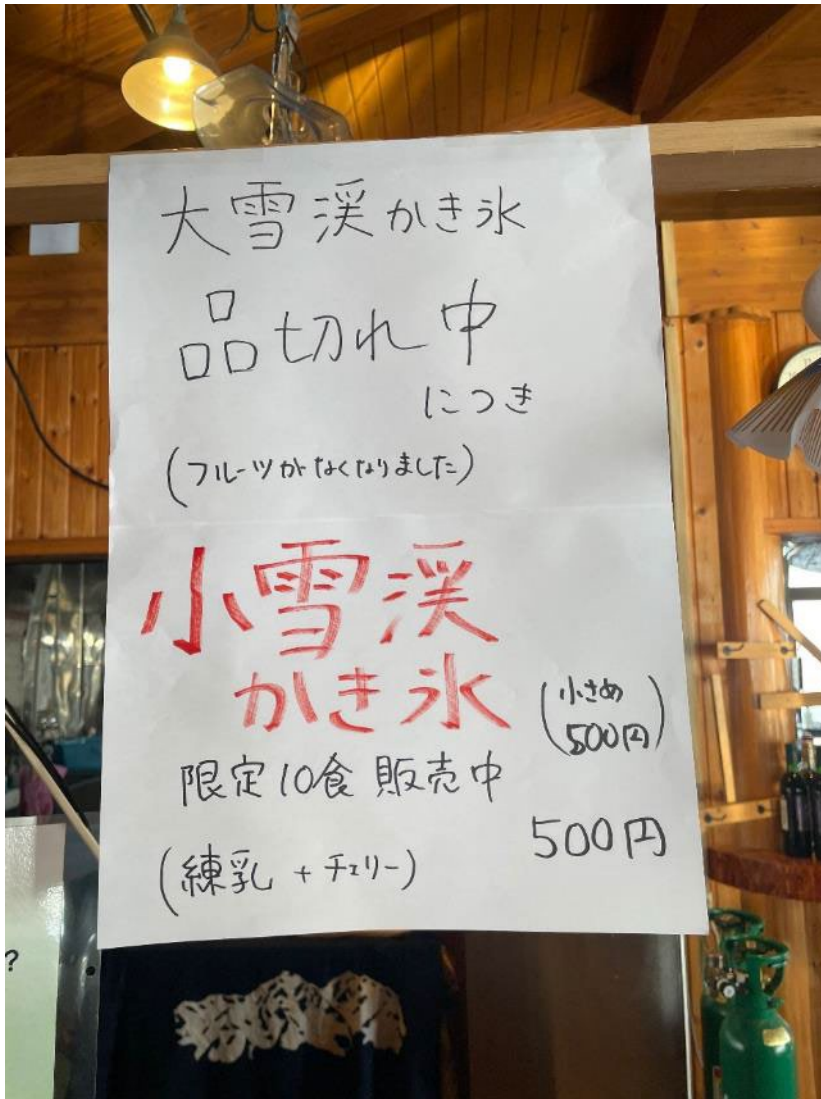 大雪渓かき氷
品切れ中
につき
(フルーツがなくなりました)
小雪渓
かき氷
(小さめ
500円)
限定10食 販売中
500円
(練乳 + チェリー)
?